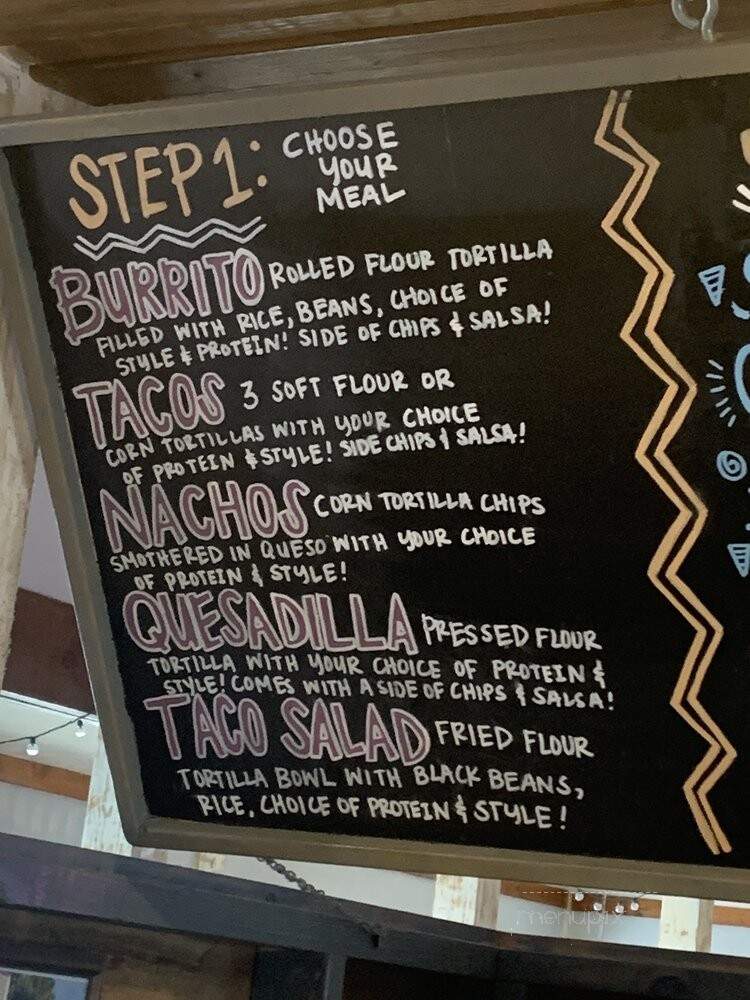 STEP 1: CHOOSE
YOUR
MEAL
BURRITO ROLLED FLOUR TORTILLA
FILLED WITH RICE, BEANS, CHOICE OF
STYLE & PROTEIN! SIDE OF CHIPS & SALSA!
TACOS 3 SOFT FLOUR OR
CORN TORTILLAS WITH YOUR CHOICE
OF PROTEIN & STYLE! SIDE CHIPS & SALSA!
NACHOS CORN TORTILLA CHIPS
SMOTHERED IN QUESO WITH YOUR CHOICE
OF PROTEIN & STYLE!
QUESADILLA PRESSED FLOUR
TORTILLA WITH YOUR CHOICE OF PROTEIN &
STYLE! COMES WITH A SIDE OF CHIPS & SALSA!
TACO SALAD FRIED FLOUR
TORTILLA BOWL WITH BLACK BEANS,
RICE, CHOICE OF PROTEIN & STYLE!
menupix